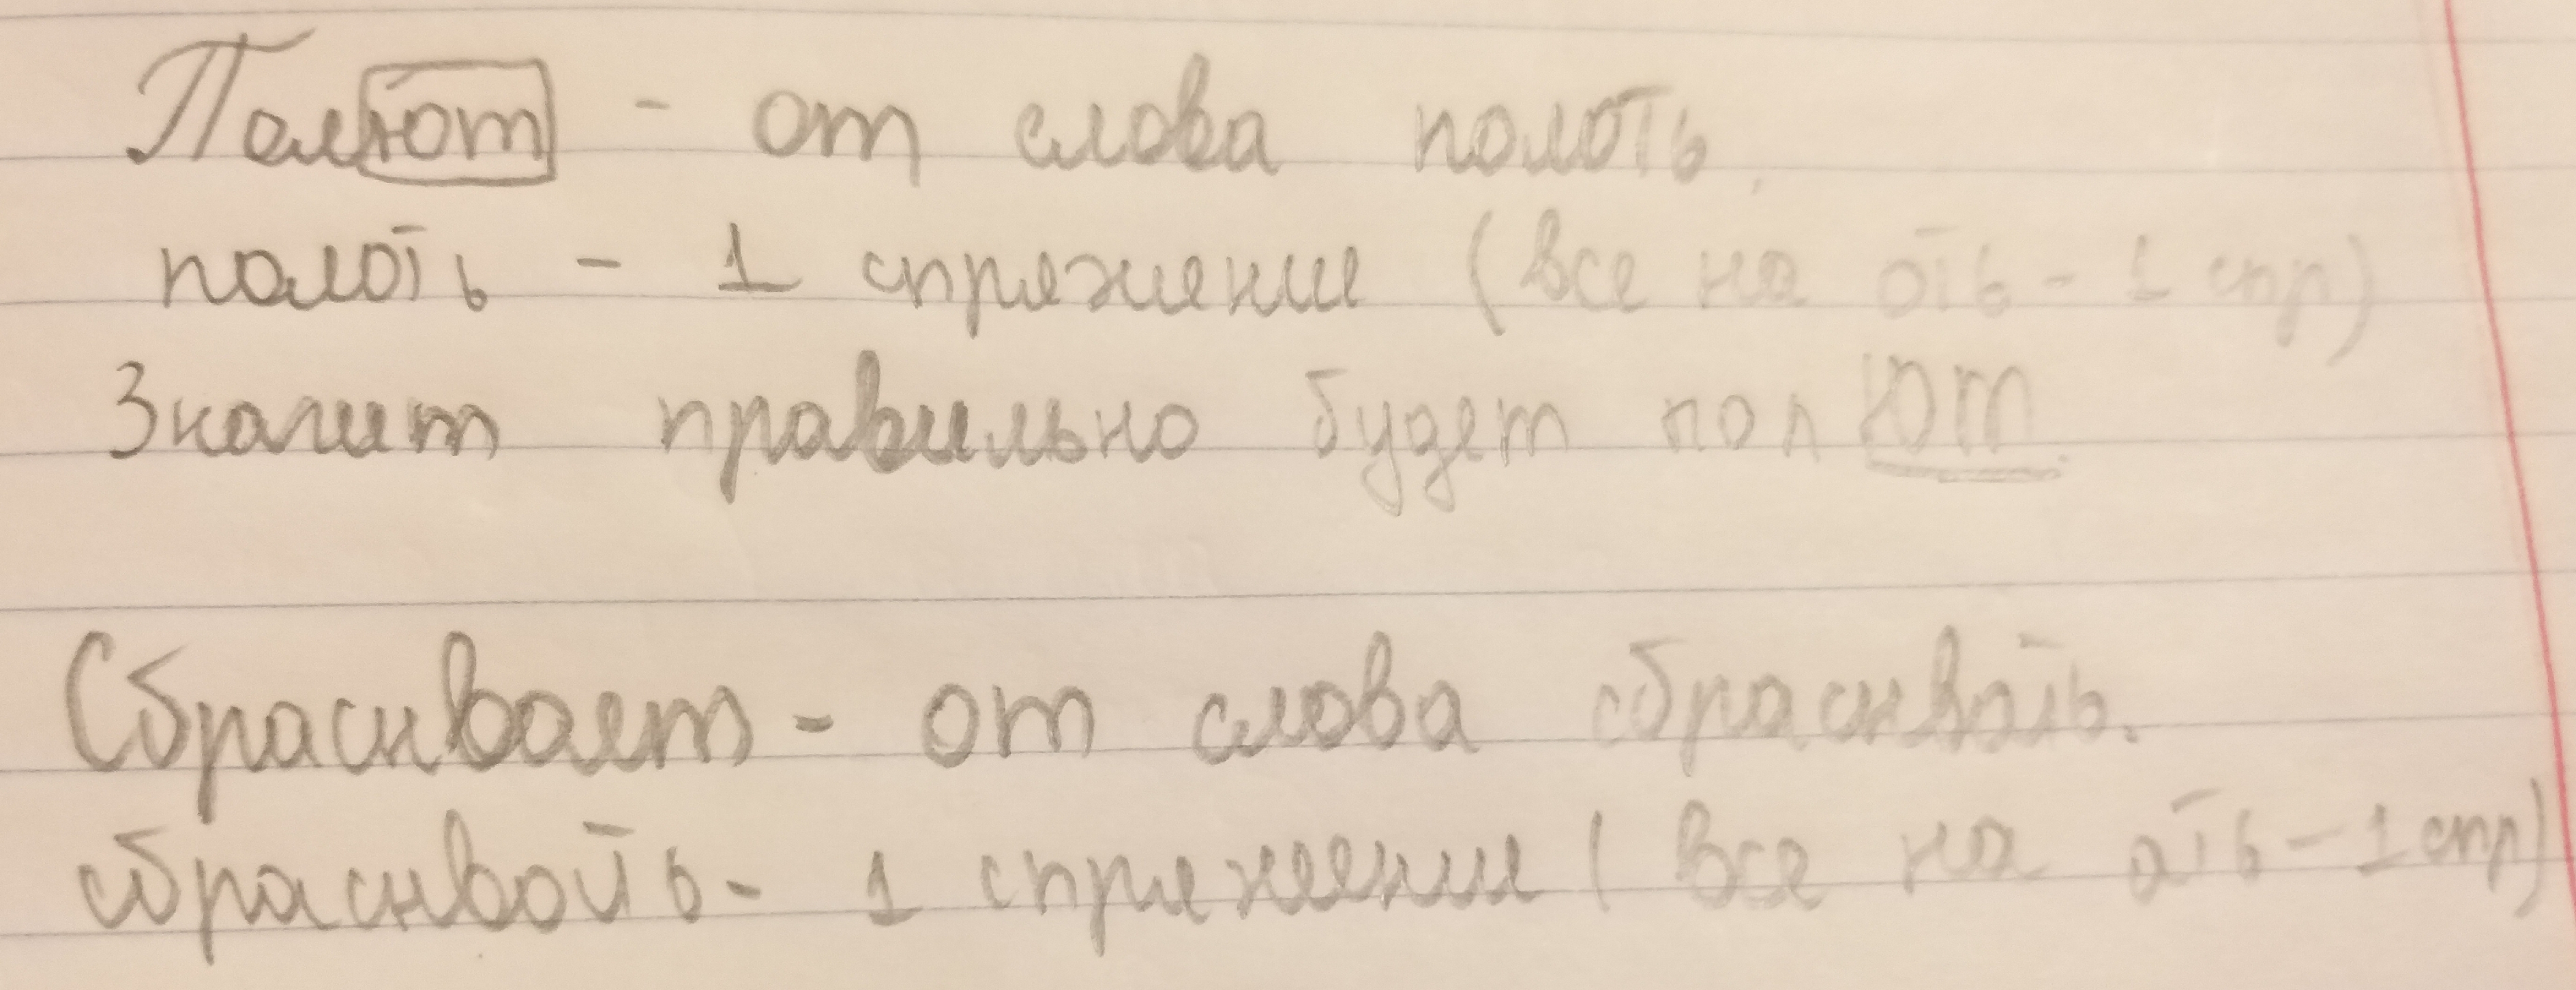 Полют - от слова полоть.
полоть - 1 спряжение (все на оть - 1 спр)
Значит правильно будет полют.
Сбрасывает - от слова сбрасывать.
сбрасывать - 1 спряжение (все на ать - 1 спр)